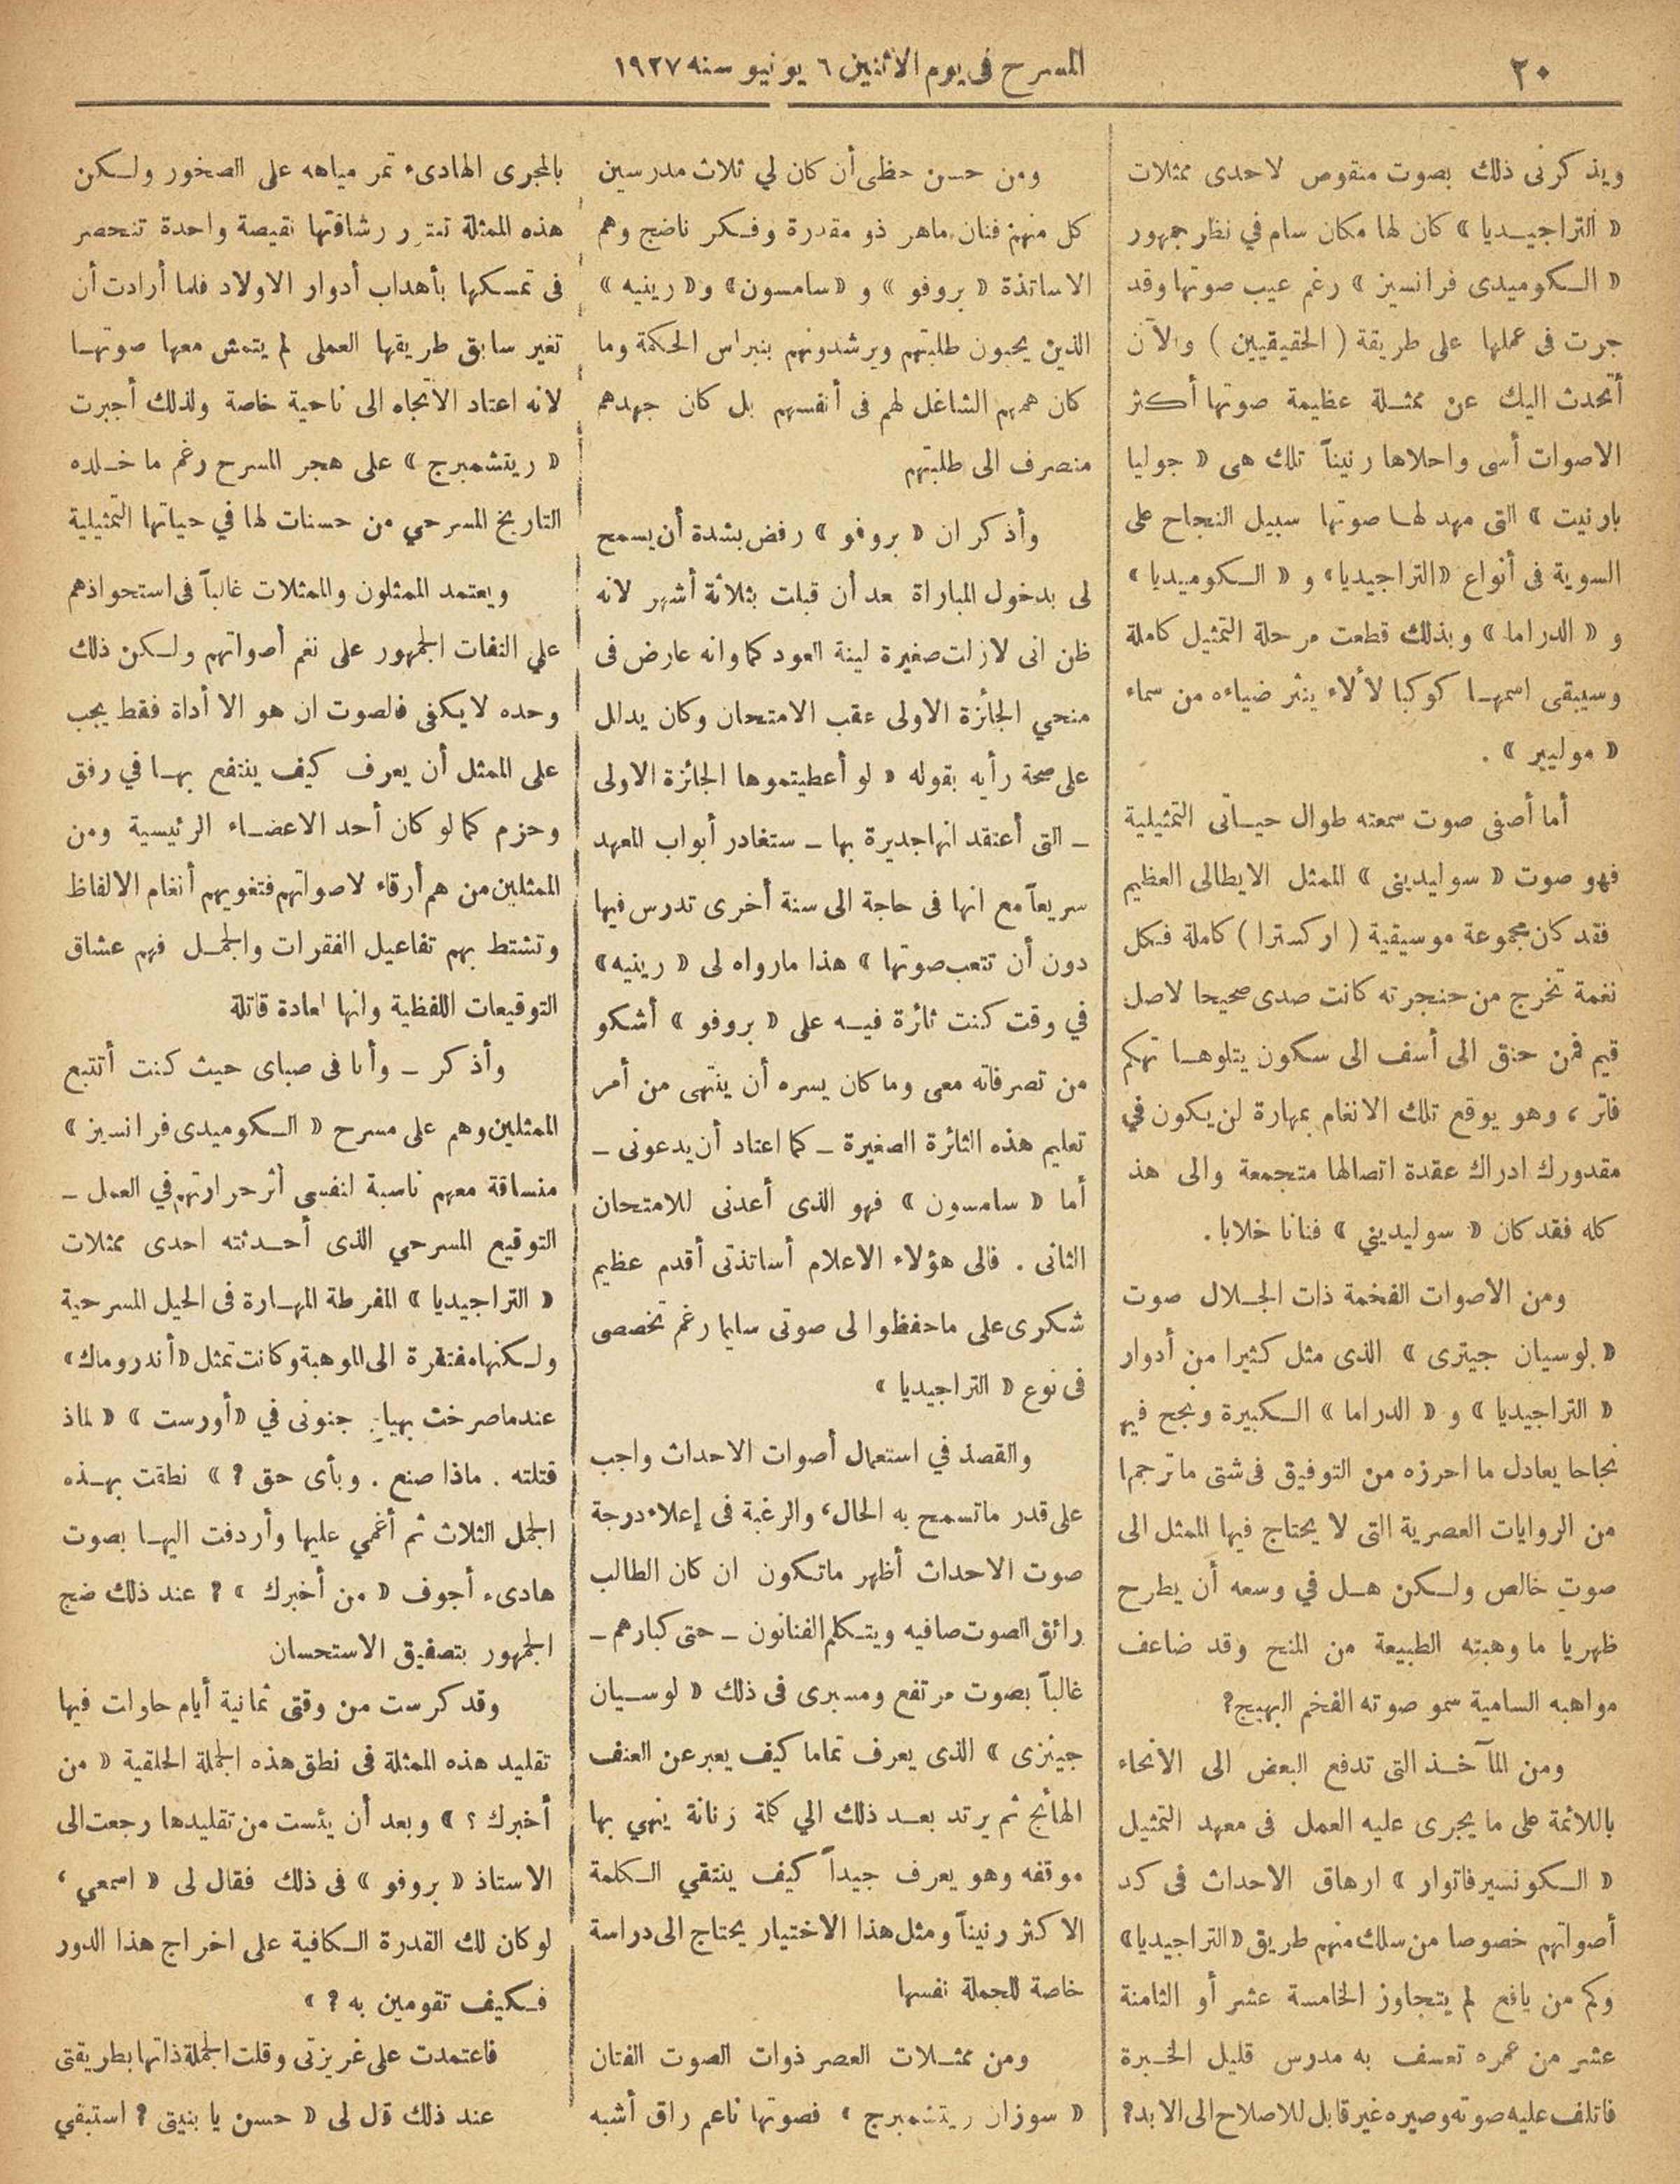 ٢٠
المسرح فى يوم الاثنين ٦ يونيو سنه ١٩٢٧
ويذكرنى ذلك بصوت منقوص لاحدى ممثلات
« التراجيديا » كان لها مكان سام في نظر جمهور
« الكوميدى فرانسيز » رغم عيب صوتها وقد
جرت فى عملها على طريقة ( الحقيقيين ) والآن
أتحدث اليك عن ممثلة عظيمة صوتها أكثر
الاصوات أسى واحلاها رنيناً تلك هى « جوليا
بارنيت » التى مهد لها صوتها سبيل النجاح على
السوية فى أنواع « التراجيديا » و « الكوميديا »
و « الدراما » وبذلك قطعت مرحلة التمثيل كاملة
وسيبقى اسمها كوكبا لألاء ينثر ضياءه من سماء
« موليير » .
أما أصفى صوت سمعته طوال حياتى التمثيلية
فهو صوت « سوليدينى » الممثل الايطالى العظيم
فقد كان مجموعة موسيقية ( اركسترا ) كاملة فكل
نغمة تخرج من حنجرته كانت صدى صحيحا لاصل
قيم فمن حنق الى أسف الى سكون يتلوها تهكم
فاتر ، وهو يوقع تلك الانغام بمهارة لن يكون في
مقدورك ادراك عقدة اتصالها متجمعة والى هذ
كله فقد كان « سوليديني » فنانا خلابا .
ومن الاصوات الفخمة ذات الجلال صوت
« لوسيان جيترى » الذى مثل كثيرا من أدوار
« التراجيديا » و « الدراما » الكبيرة ونجح فيها
نجاحا يعادل ما احرزه من التوفيق فى شتى ماترجم
من الروايات العصرية التى لا يحتاج فيها الممثل الى
صوت خالص ولكن هل في وسعه أن يطرح
ظهريا ما وهبته الطبيعة من المنح وقد ضاعف
مواهبه السامية سمو صوته الفخم البهيج ?
ومن المآخذ التى تدفع البعض الى الانحاء
باللائمة على ما يجرى عليه العمل فى معهد التمثيل
« الكونسيرفاتوار » ارهاق الاحداث فى كد
أصواتهم خصوصا من سلك منهم طريق « التراجيديا »
وكم من يافع لم يتجاوز الخامسة عشر أو الثامنة
عشر من عمره تعسف به مدرس قليل الخبرة
فاتلف عليه صوته وصيره غير قابل للاصلاح الى الابد ?
ومن حسن حظى أن كان لي ثلاث مدرسين
كل منهم فنان ماهر ذو مقدرة وفكر ناضج وهم
الاساتذة « بروفو » و « سامسون » و « رينيه »
الذين يحبون طلبتهم ويرشدونهم بنبراس الحكمة وما
كان همهم الشاغل لهم فى أنفسهم بل كان جهدهم
منصرف الى طلبتهم
وأذكر ان « بروفو » رفض بشدة أن يسمح
لى بدخول المباراة عد أن قبلت بثلاثة أشهر لانه
ظن انى لازلت صغيرة لينة العود كما وانه عارض فى
منحي الجائزة الاولى عقب الامتحان وكان يدلل
على صحة رأيه بقوله « لو أعطيتموها الجائزة الاولى
ـ التى أعتقد انها جديرة بها ـ ستغادر أبواب المعهد
سريعاً مع انها فى حاجة الى سنة أخرى تدرس فيها
دون أن تتعب صوتها » هذا مارواه لى « رينيه »
في وقت كنت ثائرة فيه على « بروفو » أشكو
من تصرفاته معى وما كان يسره أن ينتهى من أمر
تعليم هذه الثائرة الصغيرة ـ كما اعتاد أن يدعونى ـ
أما « سامسون » فهو الذى أعدنى للامتحان
الثانى . فالى هؤلاء الاعلام أساتذتى أقدم عظيم
شكرى على ماحفظوا لى صوتى سليما رغم تخصصى
فى نوع « التراجيديا »
والقصد في استعمال أصوات الاحداث واجب
على قدر ماتسمح به الحال ، والرغبة فى إعلاء درجة
صوت الاحداث أظهر ماتكون ان كان الطالب
رائق الصوت صافيه ويتكلم الفنانون ـ حتى كبارهم ـ
غالباً بصوت مرتفع ومسبرى فى ذلك « لوسيان
جيتزى » الذى يعرف تماما كيف يعبر عن العنف
الهائج ثم يرتد بعد ذلك الي كلمة رنانة ينهي بها
موقفه وهو يعرف جيداً كيف ينتقي الكلمة
الاكثر رنيناً ومثل هذا الاختيار يحتاج الى دراسة
خاصة للجملة نفسها
ومن ممثلات العصر ذوات الصوت الفتان
« سوزان ريتشمبرج » فصوتها ناعم راق أشبه
بالمجرى الهادىء تمر مياهه على الصخور ولكن
هذه الممثلة تعتور رشاقتها نقيصة واحدة تنحصر
فى تمسكها بأهداب أدوار الاولاد فلما أرادت أن
تغير سابق طريقها العملى لم يتمش معها صوتها
لانه اعتاد الاتجاه الى ناحية خاصة ولذلك أجبرت
« ريتشمبرج » على هجر المسرح رغم ما خلده
التاريخ المسرحي من حسنات لها في حياتها التمثيلية
ويعتمد الممثلون والممثلات غالباً فى استحواذهم
علي التفات الجمهور على نغم أصواتهم ولكن ذلك
وحده لا يكفى فالصوت ان هو الا أداة فقط يجب
على الممثل أن يعرف كيف ينتفع بها في رفق
وحزم كما لو كان أحد الاعضاء الرئيسية ومن
الممثلين من هم أرقاء لاصواتهم فتغويهم أنغام الالفاظ
وتشتط بهم تفاعيل الفقرات والجمل فهم عشاق
التوقيعات اللفظية وانها لعادة قاتلة
وأذكر ـ وأنا فى صباى حيث كنت أتتبع
الممثلين وهم على مسرح « الكوميدى فرانسيز »
منساقة معهم ناسبة لنفسى أثر حرارتهم في العمل ـ
التوقيع المسرحي الذى أحدثته احدى ممثلات
« التراجيديا » المفرطة المهارة فى الحيل المسرحية
ولكنها مفتقرة الى الموهبة وكانت تمثل « أندروماك »
عندما صرخت بهياج جنونى في « أورست » « لماذ
قتلته . ماذا صنع . وبأى حق ? » نطقت بهذه
الجمل الثلاث ثم أغمي عليها وأردفت اليها بصوت
هادىء أجوف « من أخبرك » ? عند ذلك ضج
الجمهور بتصفيق الاستحسان
وقد كرست من وقتى ثمانية أيام حاوات فيها
تقليد هذه الممثلة فى نطق هذه الجملة الحلقية « من
أخبرك ؟ » وبعد أن يئست من تقليدها رجعت الى
الاستاذ « بروفو » فى ذلك فقال لى « اسمعي ،
لو كان لك القدرة الكافية على اخراج هذا الدور
فكيف تقومين به ? »
فاعتمدت على غريزتى وقلت الجملة ذاتها بطريقتى
عند ذلك قال لى « حسن يا بنيتى ? استبقي